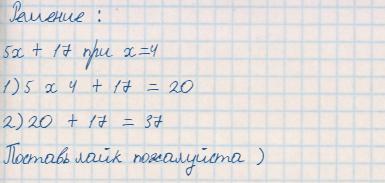 Решение :
5x + 17 при x=4
1) 5 x 4 + 17 = 20
2) 20 + 17 = 37
Поставь лайк пожалуйста )